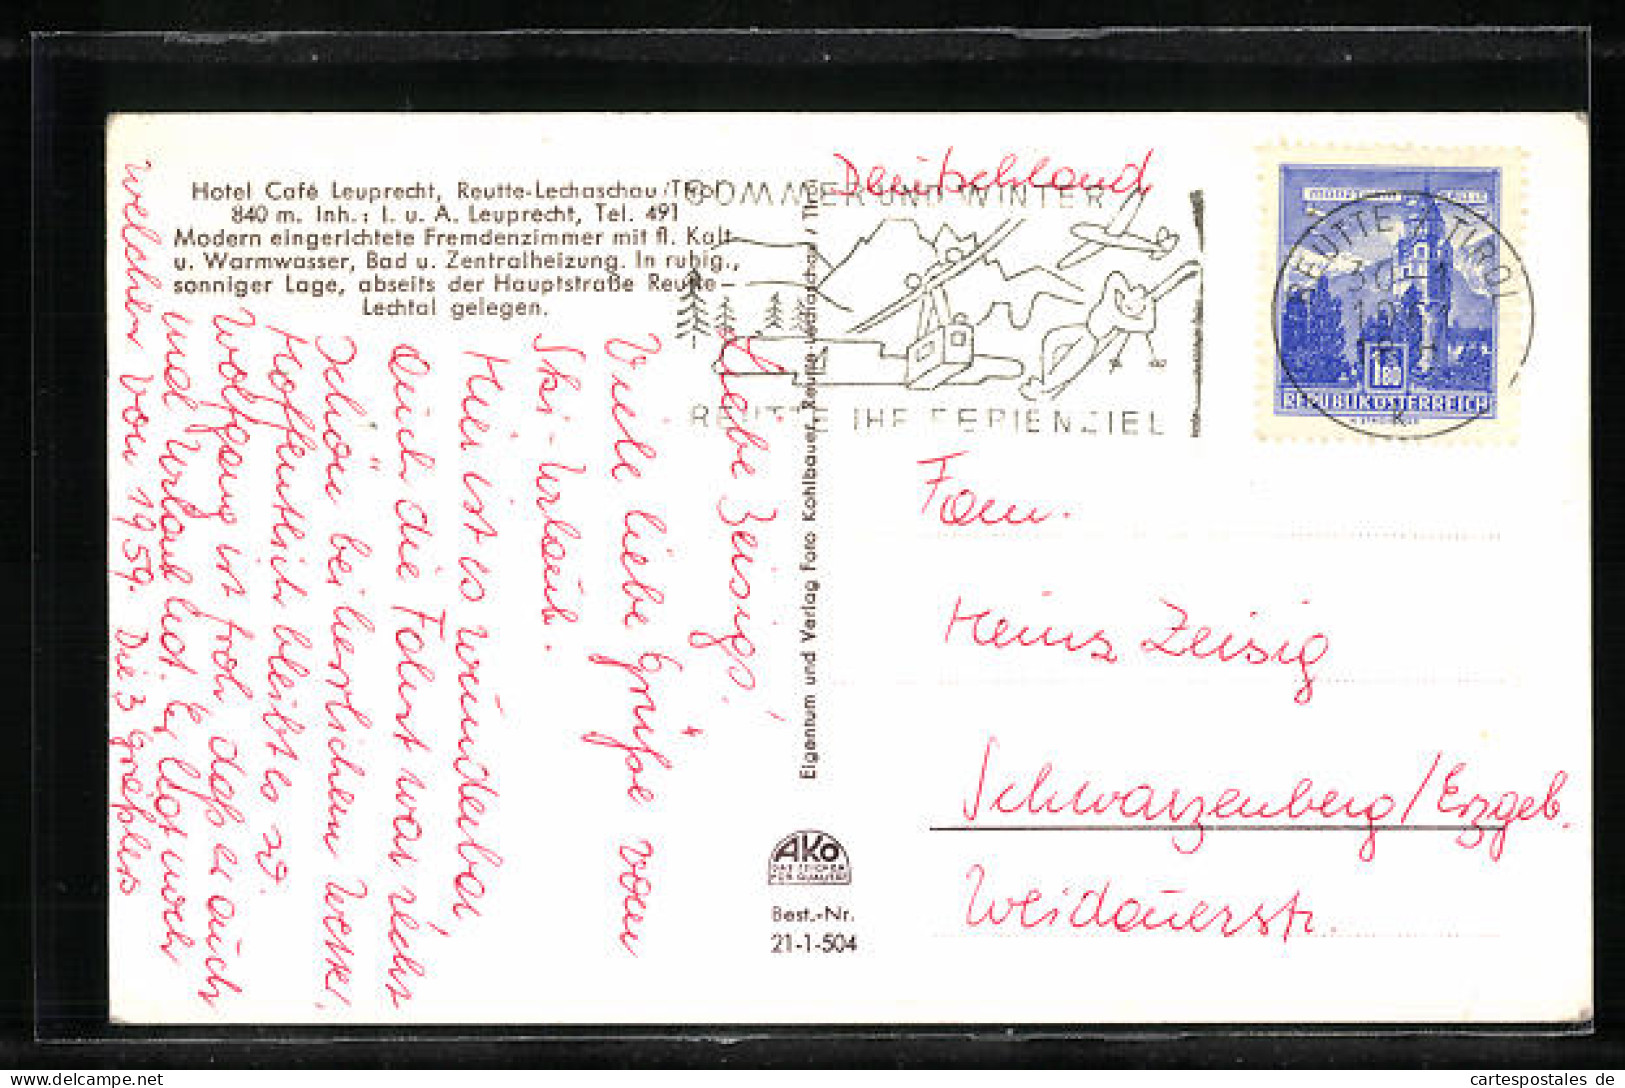 Hotel Café Leuprecht, Reutte-Lechaschau/Tirol
840 m. Inh.: I. u. A. Leuprecht, Tel. 491
Modern eingerichtete Fremdenzimmer mit fl. Kalt-
u. Warmwasser, Bad u. Zentralheizung. In ruhig.,
sonniger Lage, abseits der Hauptstraße Reutte-
Lechtal gelegen.
Liebe Zeisig's!
Viele liebe Grüße vom
Ski-Urlaub.
Hier ist es wunderbar,
auch die Fahrt war sehr
schön bei herrlichem Wetter.
Hoffentlich bleibt es so.
Wolfgang ist froh daß er auch
mal Urlaub hat. Er liegt noch
welcher von 1959. Die 3
Eigentum und Verlag Foto Kohlbauer, Reutte-Lechaschau / Tirol
AKO
DAS ZEICHEN
FÜR QUALITÄT
Best.-Nr.
21-1-504
Deutschland
SOMMER UND WINTER
REUTTE IHR FERIENZIEL
REUTTE / TIROL
30
k
1.80
REPUBLIK ÖSTERREICH
Fam.
Heinz Zeisig
Schwarzenberg/Erzgeb.
Weidauerstr.
cartespostales de